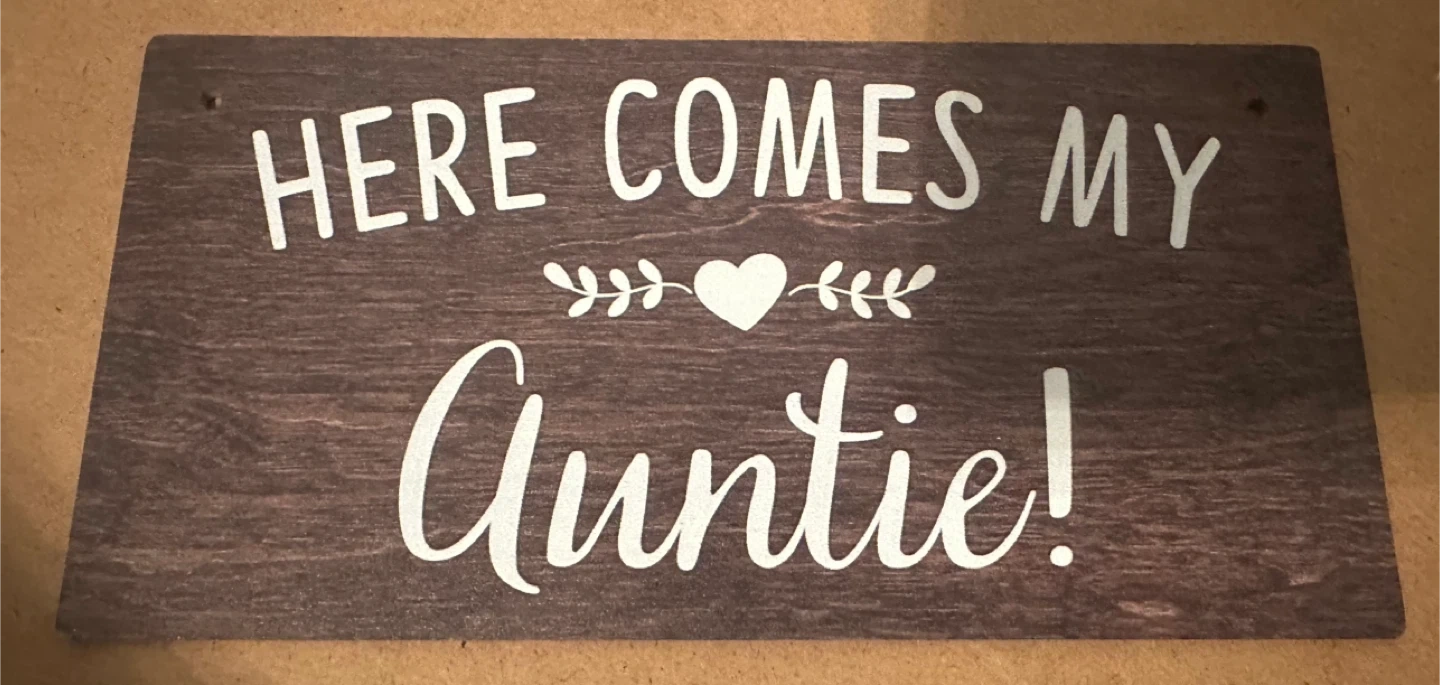 HERE COMES MY
Auntie!